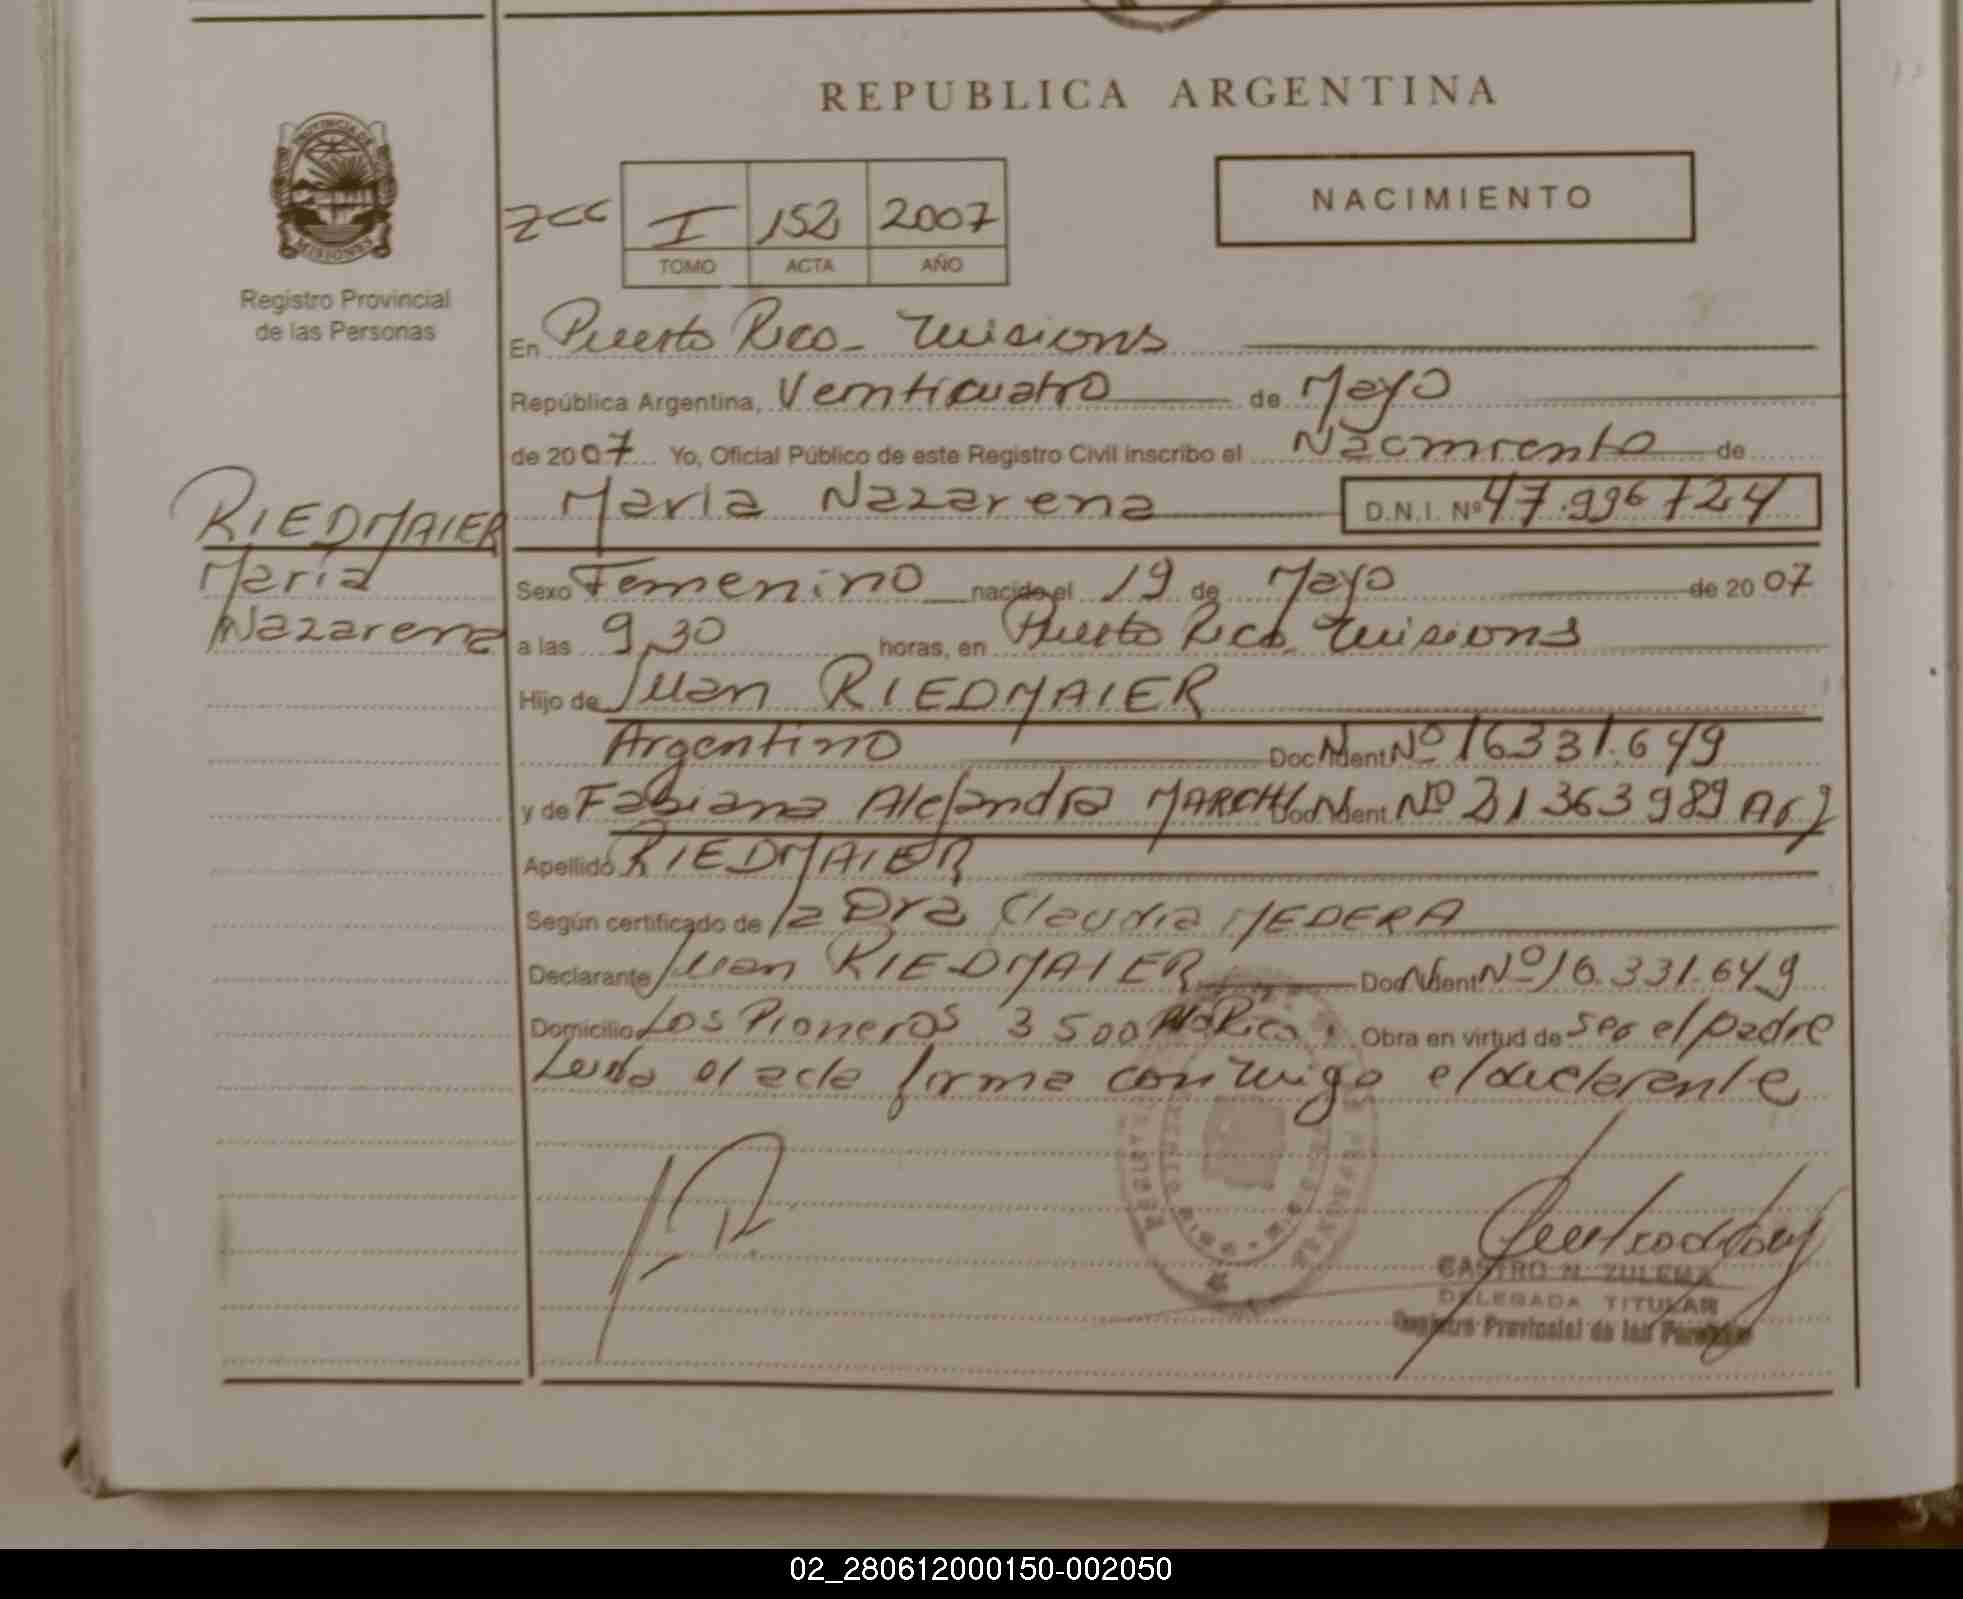 REPUBLICA ARGENTINA
PROVINCIA DE
MISIONES
Registro Provincial
de las Personas
zcc I 152 2007
TOMO ACTA AÑO
NACIMIENTO
En Puerto Rico - Misiones
República Argentina, Veinticuatro de Mayo
de 2007 Yo, Oficial Público de este Registro Civil inscribo el Nacimiento de
Maria Nazarena D.N.I. Nº 47.996724
RIEDMAIER
Maria
Nazarena
Sexo Femenino nacido el 19 de Mayo de 2007
a las 9,30 horas, en Puerto Rico Misiones
Hijo de Juan RIEDMAIER
Argentino Doc. Ident. Nº 16331.649
y de Fabiana Alejandra MARCHI Doc. Ident. Nº 21363989 Arg
Apellido RIEDMAIER
Según certificado de la Dra Claudia MEDERA
Declarante Juan RIEDMAIER Doc. Ident. Nº 16.331.649
Domicilio Los Pioneros 3500 Rico Obra en virtud de ser el padre
Leida el acta firma conmigo el declarante
CASTRO N. ZULEMA
DELEGADA TITULAR
Registro Provincial de las Personas
02_280612000150-002050